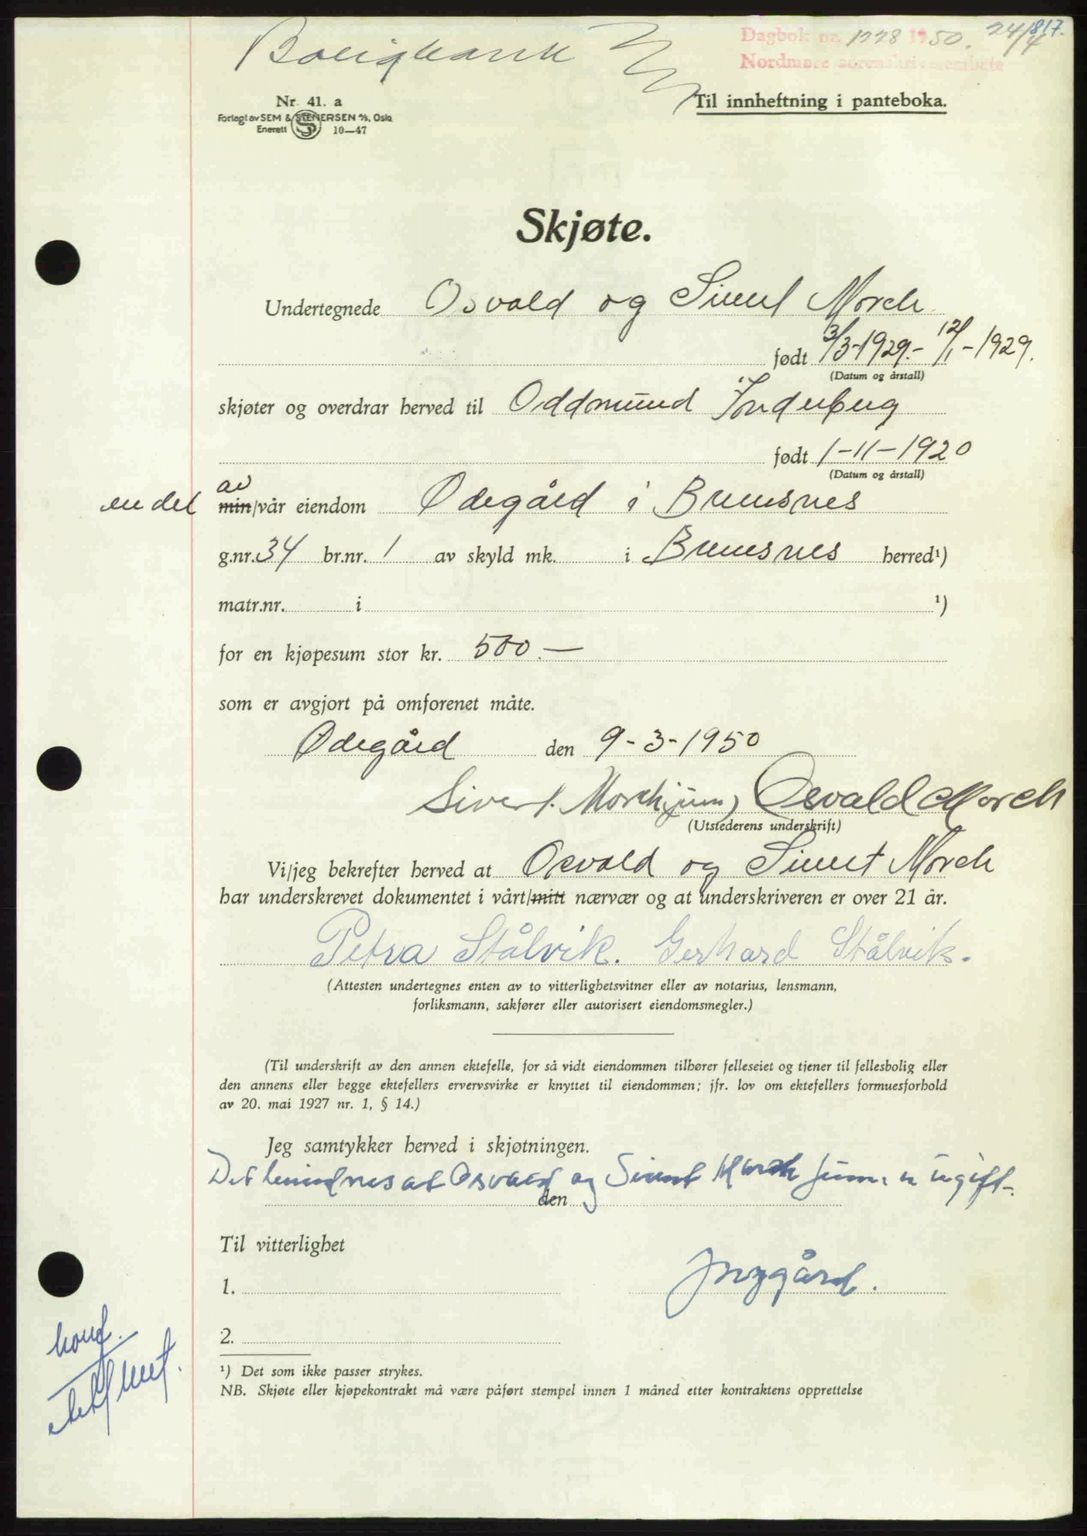 Boligbank
Dagbok nr. 1228 1950. 24/4 817.
Nordmøre sorenskriverembete
Nr. 41. a
Forlagt av SEM & STENERSEN A/S, Oslo
Enerett 10—47
Til innheftning i panteboka.
Skjøte.
Undertegnede Osvald og Sivert Morch
født 3/3-1929.- 12/1-1929.
(Datum og årstall)
skjøter og overdrar herved til Oddmund Inderberg
født 1-11-1920
(Datum og årstall)
en del av min/vår eiendom Ødegård i Bremsnes
g.nr. 34 br.nr. 1 av skyld mk. i Bremsnes herred¹)
matr.nr. i ¹)
for en kjøpesum stor kr. 500.—
som er avgjort på omforenet måte.
Ødegård den 9-3-1950
Sivert Morch (jun) Osvald Morch
(Utstederens underskrift)
Vi/jeg bekrefter herved at Osvald og Sivert Morch
har underskrevet dokumentet i vårt/mitt nærvær og at underskriveren er over 21 år.
Petra Stålvik. Gerhard Stålvik.
(Attesten undertegnes enten av to vitterlighetsvitner eller av notarius, lensmann,
forliksmann, sakfører eller autorisert eiendomsmegler.)
(Til underskrift av den annen ektefelle, for så vidt eiendommen tilhører felleseiet og tjener til fellesbolig eller
den annens eller begge ektefellers ervervsvirke er knyttet til eiendommen; jfr. lov om ektefellers formuesforhold
av 20. mai 1927 nr. 1, § 14.)
Jeg samtykker herved i skjøtningen.
Det bevidnes at Osvald og Sivert Morch jun. er ugift.
den
Til vitterlighet
1.
2.
¹) Det som ikke passer strykes.
NB. Skjøte eller kjøpekontrakt må være påført stempel innen 1 måned etter kontraktens opprettelse